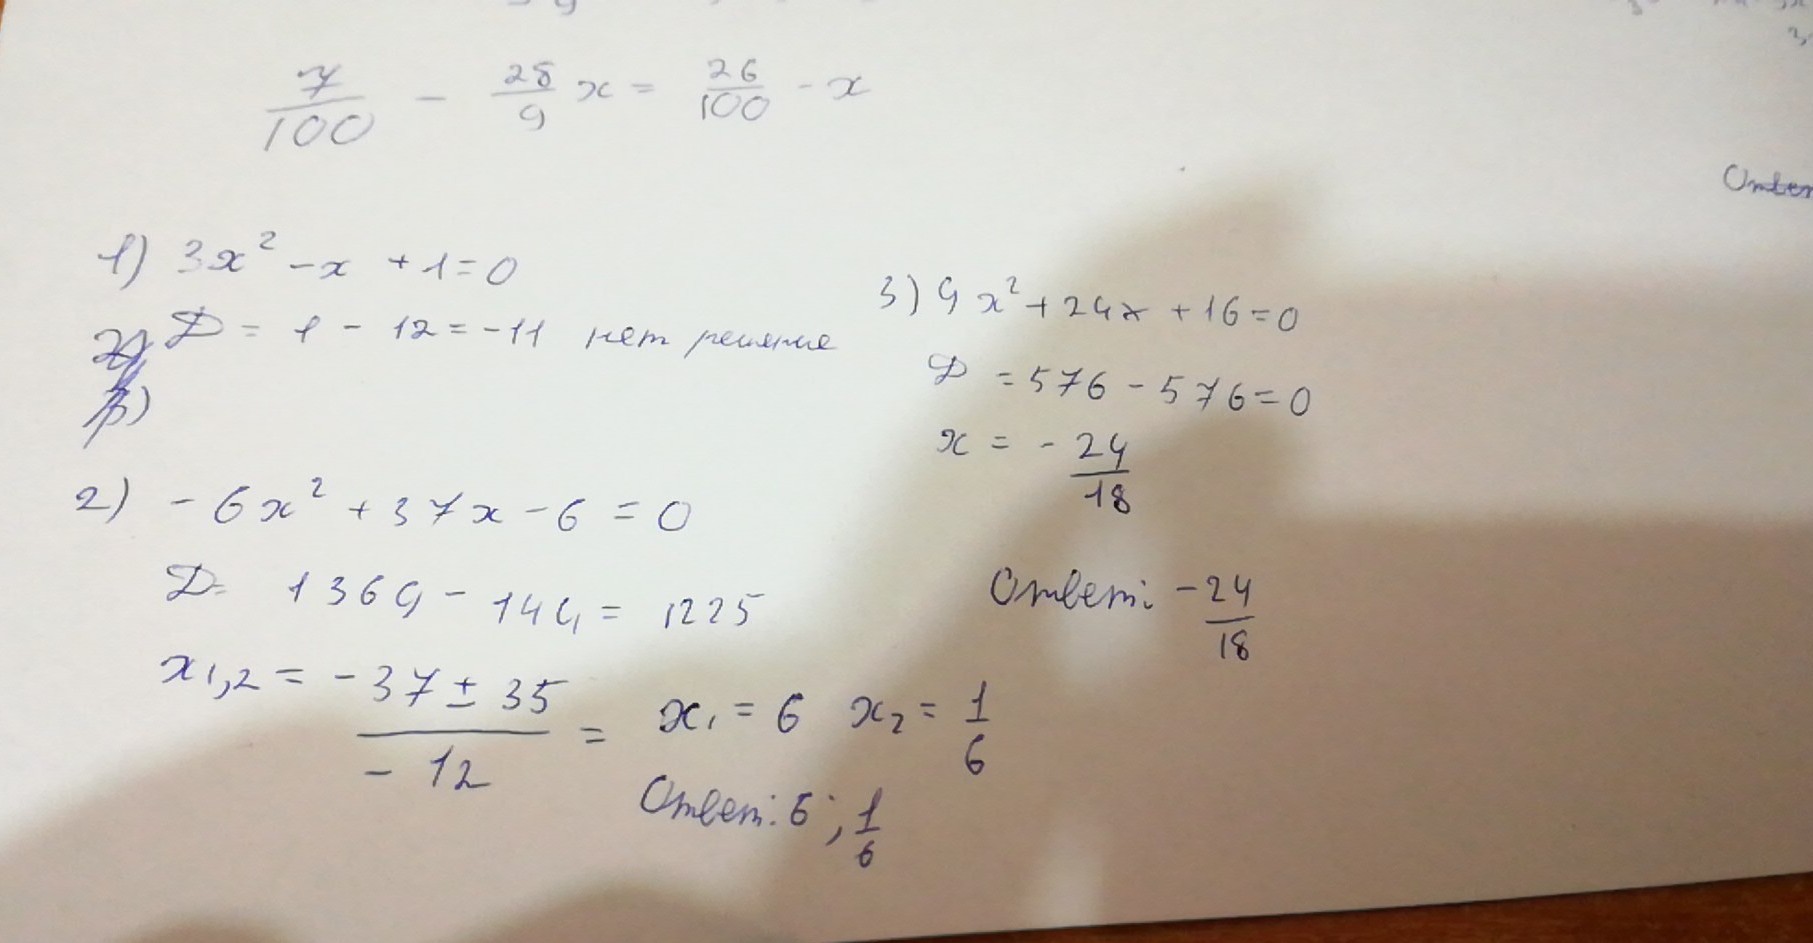 7/100 - 28/9 x = 26/100 - x
1) 3x² - x + 1 = 0
D = 1 - 12 = -11 нет решение
2) -6x² + 37x - 6 = 0
D = 1369 - 144 = 1225
x1,2 = -37 ± 35 / -12 = x1 = 6 x2 = 1/6
Ответ: 6; 1/6
3) 9x² + 24x + 16 = 0
D = 576 - 576 = 0
x = - 24/18
Ответ: -24/18